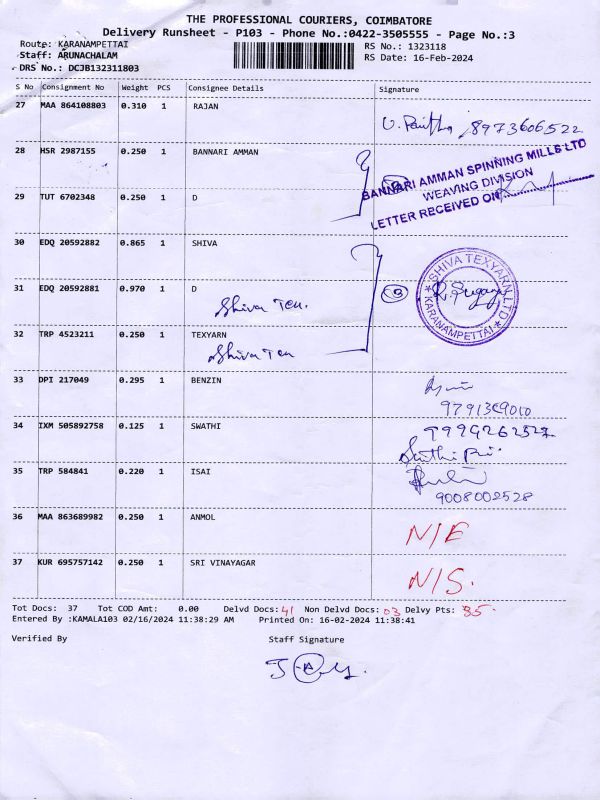 THE PROFESSIONAL COURIERS, COIMBATORE
Delivery Runsheet - P103 - Phone No.:0422-3505555 - Page No.:3
Route: KARANAMPETTAI
RS No.: 1323118
Staff: ARUNACHALAM
RS Date: 16-Feb-2024
DRS No.: DCJB132311803
S No Consignment No Weight PCS Consignee Details Signature
27 MAA 864108803 0.310 1 RAJAN
8973606522
28 HSR 2987155 0.250 1 BANNARI AMMAN
BANNARI AMMAN SPINNING MILLS LTD
WEAVING DIVISION
LETTER RECEIVED ON
29 TUT 6702348 0.250 1 D
30 EDQ 20592882 0.865 1 SHIVA
31 EDQ 20592881 0.970 1 D
Shiva Tex.
SHIVA TEXYARN LTD
KARANAMPETTAI
32 TRP 4523211 0.250 1 TEXYARN
Shiva Tex
33 DPI 217049 0.295 1 BENZIN
34 IXM 505892758 0.125 1 SWATHI
35 TRP 584841 0.220 1 ISAI
9008002528
36 MAA 863689982 0.250 1 ANMOL
N/E
37 KUR 695757142 0.250 1 SRI VINAYAGAR
N/S.
Tot Docs: 37 Tot COD Amt: 0.00 Delvd Docs: 41 Non Delvd Docs: 03 Delvy Pts: 35
Entered By :KAMALA103 02/16/2024 11:38:29 AM Printed On: 16-02-2024 11:38:41
Verified By Staff Signature